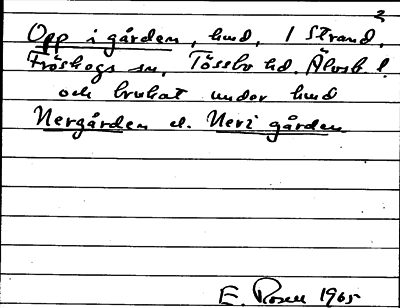 2
Opp i gården, hmd, 1 Strand,
Fröskogs sn, Tössbo hd, Älvsb. l.
och brukat under hmd
Nergården el. Neri gården
E. Rosen 1965